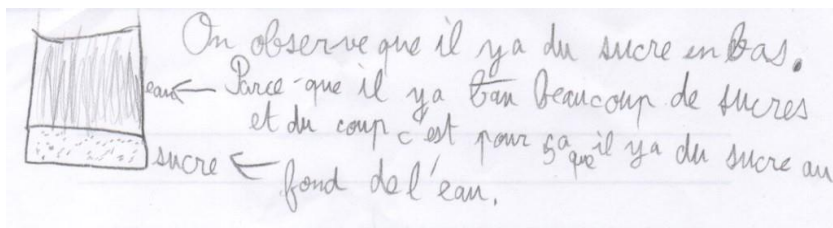 On observe que il y a du sucre en bas.
eau ← Parce-que il y a beaucoup de sucres
et du coup c'est pour sa que il y a du sucre au
sucre ← fond de l'eau.